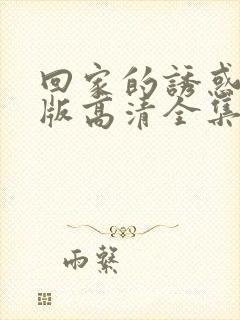 回家的誘惑
版高清全集
雨繫